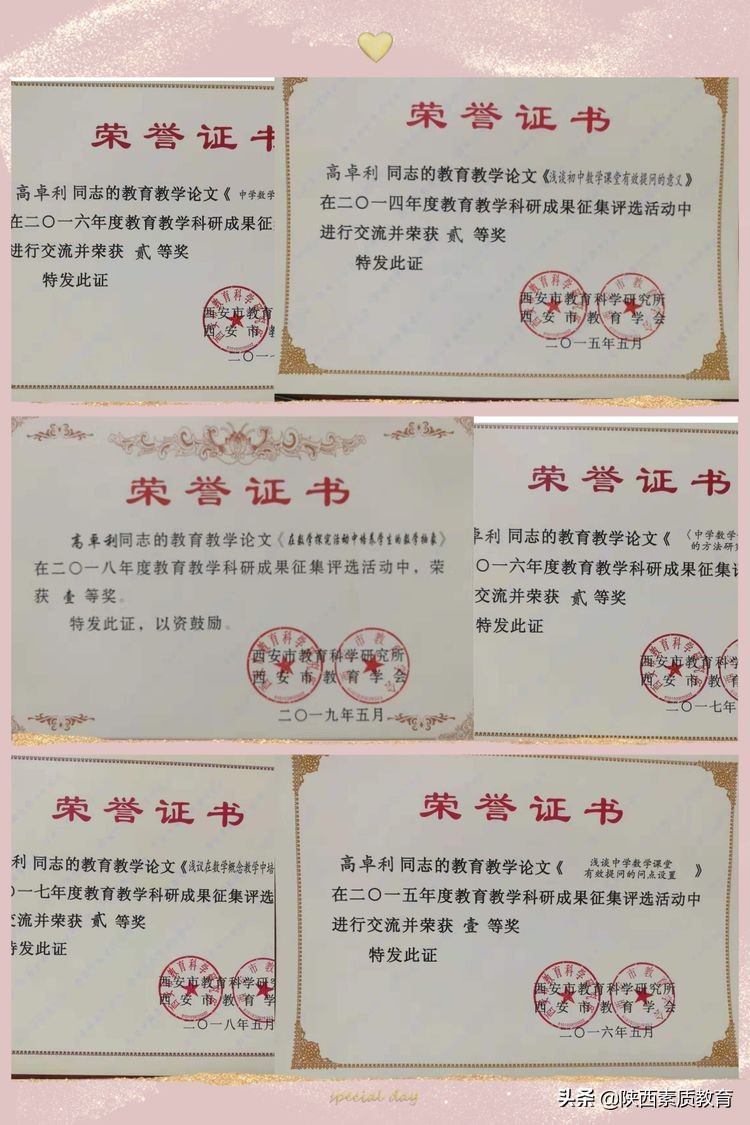 荣誉证书
高卓利 同志的教育教学论文《 中学数学
在二〇一六年度教育教学科研成果征集
进行交流并荣获 贰 等奖
特发此证
西安市教育
西安市教
二〇一
荣誉证书
高卓利 同志的教育教学论文《浅谈初中数学课堂有效提问的意义》
在二〇一四年度教育教学科研成果征集评选活动中
进行交流并荣获 贰 等奖
特发此证
西安市教育科学研究所
西安市教育学会
二〇一五年五月
荣誉证书
高卓利同志的教育教学论文《在数学探究活动中培养学生的数学抽象》
在二〇一八年度教育教学科研成果征集评选活动中，荣
获 壹 等奖。
特发此证，以资鼓励。
西安市教育科学研究所
西安市教育学会
二〇一九年五月
荣誉证书
卓利 同志的教育教学论文《 〈中学数学
的方法研究
〇一六年度教育教学科研成果征集评
交流并荣获 贰 等奖
特发此证
西安市教育科学
西安市教育
二〇一七年
荣誉证书
利 同志的教育教学论文《浅议在数学概念教学中培
〇一七年度教育教学科研成果征集评选
交流并荣获 贰 等奖
特发此证
西安市教育科学研究
西安市教育学
二〇一八年五月
荣誉证书
高卓利 同志的教育教学论文《 浅谈中学数学课堂
有效提问的问点设置 》
在二〇一五年度教育教学科研成果征集评选活动中
进行交流并荣获 壹 等奖
特发此证
西安市教育科学研究所
西安市教育学会
二〇一六年五月
special day
头条 @陕西素质教育